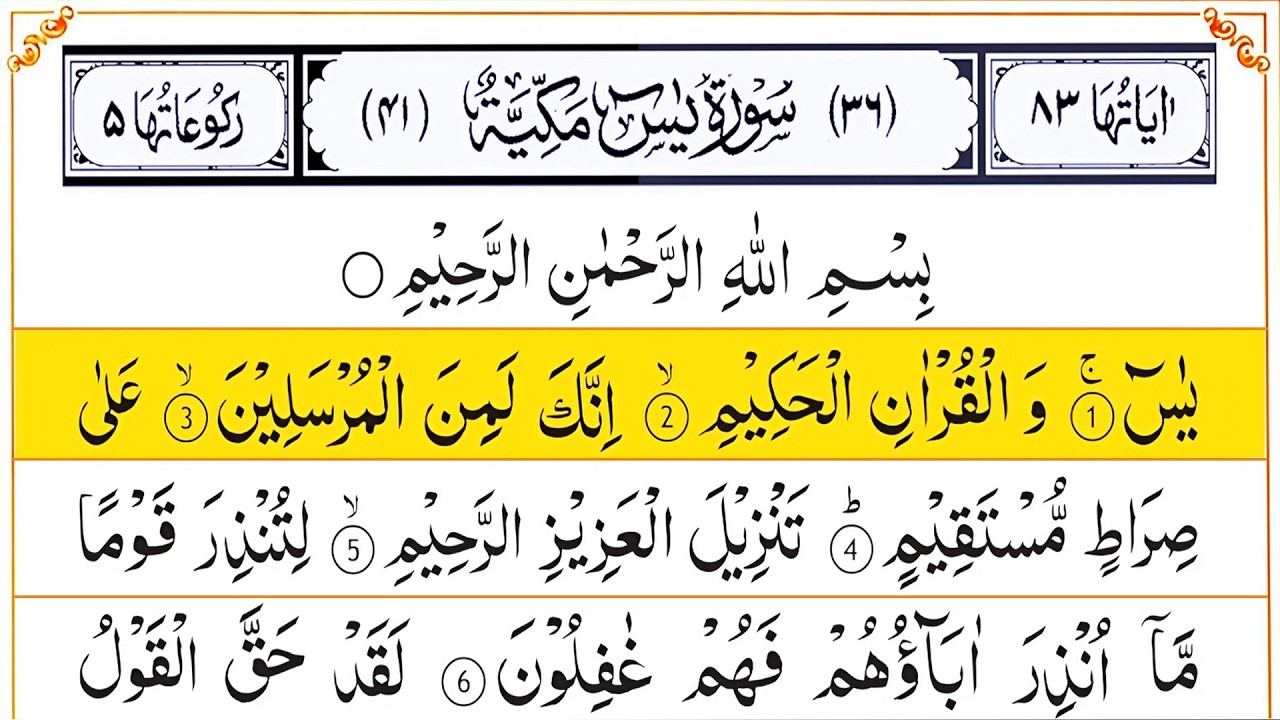 اٰيَاتُهَا ٨٣ (٣٦) سُوْرَةُ يٰسٓ مَكِّيَّةٌ (٤١) رُكُوْعَاتُهَا ۵
بِسْمِ اللّٰهِ الرَّحْمٰنِ الرَّحِيْمِ ○
يٰسٓ ۚ ① وَ الْقُرْاٰنِ الْحَكِيْمِ ۙ ② اِنَّكَ لَمِنَ الْمُرْسَلِيْنَ ۙ ③ عَلٰى
صِرَاطٍ مُّسْتَقِيْمٍ ؕ ④ تَنْزِيْلَ الْعَزِيْزِ الرَّحِيْمِ ۙ ⑤ لِتُنْذِرَ قَوْمًا
مَّاۤ اُنْذِرَ اٰبَآؤُهُمْ فَهُمْ غٰفِلُوْنَ ⑥ لَقَدْ حَقَّ الْقَوْلُ